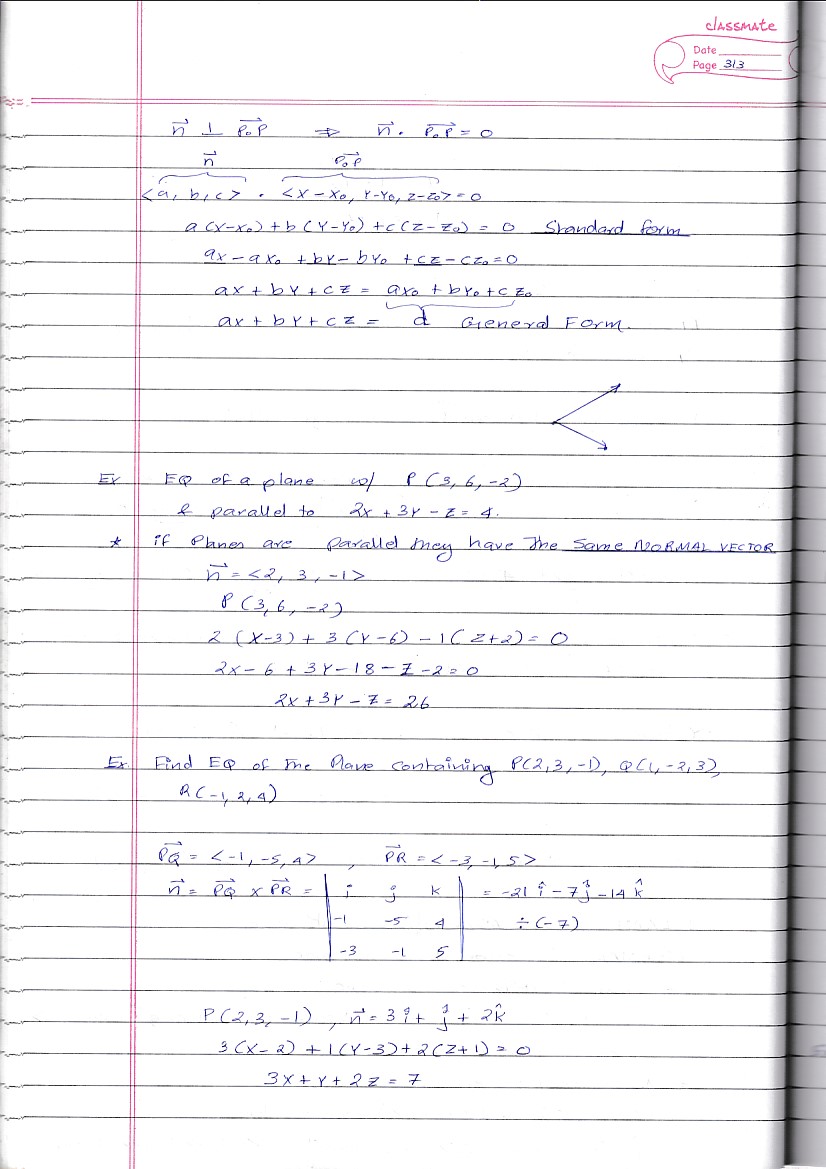 classmate
Date
Page 313
n⃗ ⊥ P₀P⃗ ⇒ n⃗ . P₀P⃗ = 0
n⃗ P₀P⃗
<a, b, c> . <x-x₀, Y-Y₀, z-z₀> = 0
a(x-x₀) + b(Y-Y₀) + c(z-z₀) = 0 Standard form
ax - ax₀ + bY - bY₀ + cz - cz₀ = 0
ax + bY + cz = ax₀ + bY₀ + cz₀
ax + bY + cz = d General Form.
Ex EQ of a plane w/ P(3, 6, -2)
& parallel to 2x + 3Y - z = 4.
* if planes are parallel they have the same NORMAL VECTOR
n⃗ = <2, 3, -1>
P(3, 6, -2)
2(x-3) + 3(Y-6) - 1(z+2) = 0
2x - 6 + 3Y - 18 - z - 2 = 0
2x + 3Y - z = 26
Ex. Find EQ of the Plane containing P(2,3,-1), Q(1,-2,3),
R(-1, 2, 4)
PQ⃗ = <-1, -5, 4> , PR⃗ = <-3, -1, 5>
n⃗ = PQ⃗ × PR⃗ = | i j k | = -21 î - 7 ĵ - 14 k̂
| -1 -5 4 | ÷ (-7)
| -3 -1 5 |
P(2, 3, -1) , n⃗ = 3 î + ĵ + 2k̂
3(x-2) + 1(Y-3) + 2(z+1) = 0
3x + Y + 2z = 7